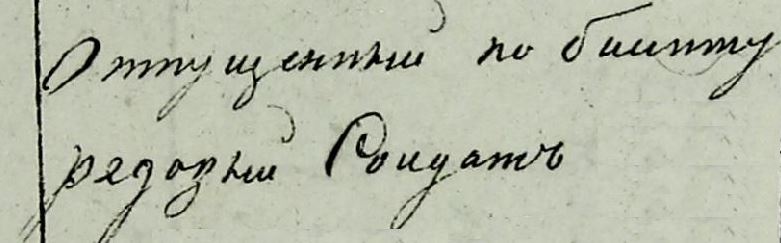 Отпущенный по билету
рядовый Солдатъ